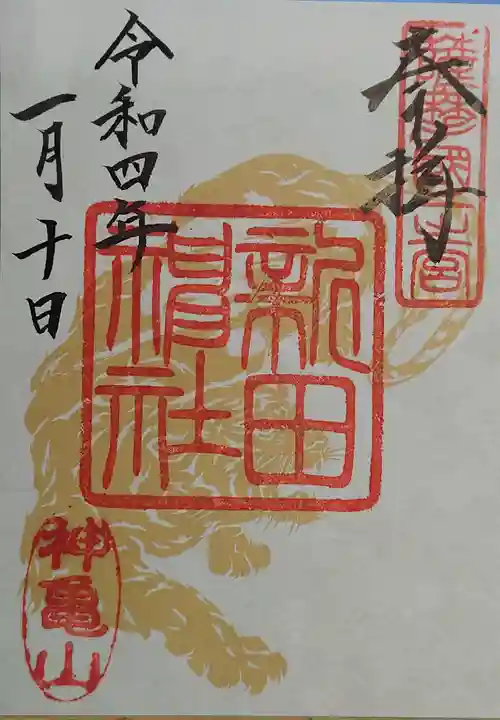 奉拝
新田
神社
令和四年
一月十日
神亀山